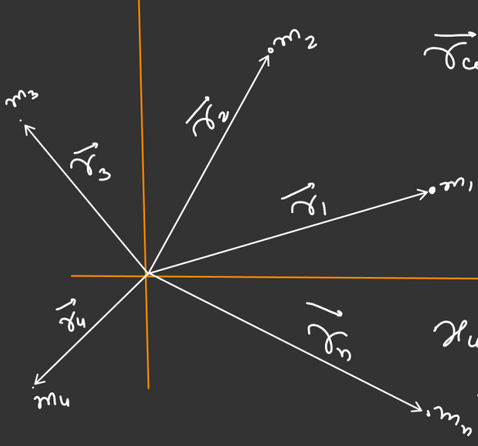 m₂
r⃗c
m₃
r⃗₂
r⃗₃
m₁
r⃗₁
r⃗₄
r⃗ₙ
m₄
mₙ